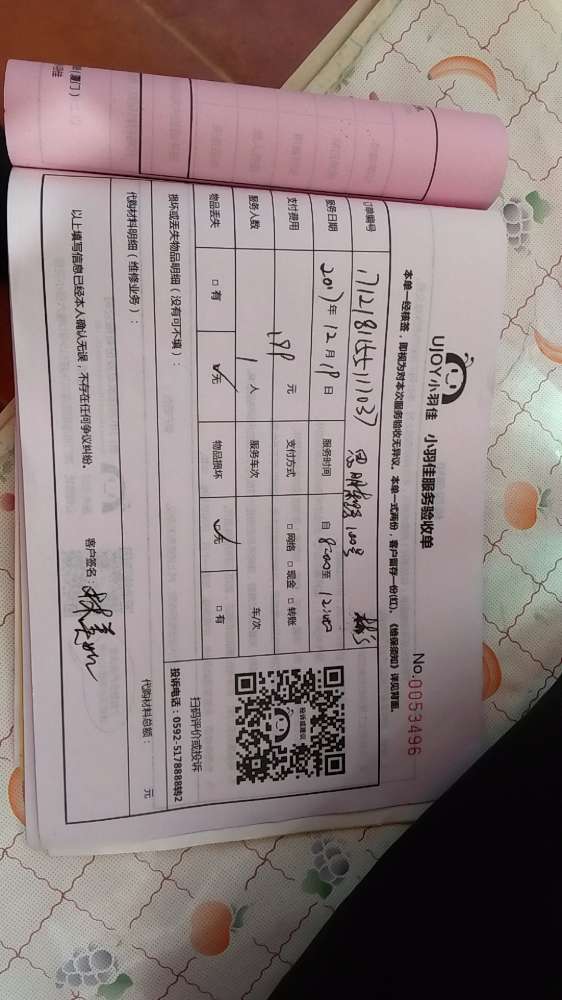 UJOY小羽佳 小羽佳服务验收单
No.0053496
本单一经核签，即视为对本次服务验收无异议。本单一式两份，客户留存一份(红)，《维保须知》详见背面。
订单编号 171218155111037 思明 100号
服务日期 2017年12月18日 服务时间 自8:00至12:00
支付费用 元 支付方式 □网络 □现金 □转账
服务人数 1人 服务车次 车/次
物品丢失 □有 ✓无 物品损坏 ✓无 □有
损坏或丢失物品明细（没有可不填）：
投诉或建议
扫码评价或投诉
投诉电话：0592-5178888转2
代购材料明细（维修业务）：
代购材料总额： 元
以上填写信息已经本人确认无误，不存在任何争议纠纷。
客户签名：